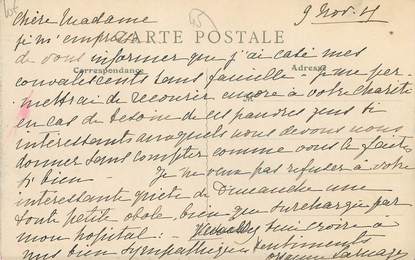 Chère Madame 9 Nov. 15
CARTE POSTALE
je m'empresse
de vous informer que j'ai casé mes
Correspondance Adresse
convalescents sans famille - je me per-
mettrai de recourir encore à votre charité
en cas de besoin de ces pauvres gens si
intéressants auxquels nous devons nous
donner sans compter comme vous le faites
si bien - Je ne veux pas refuser à votre
intéressante quête de Dimanche une
toute petite obole, bien que surchargée par
mon hôpital: - Veuillez croire à
mes bien sympathiques sentiments